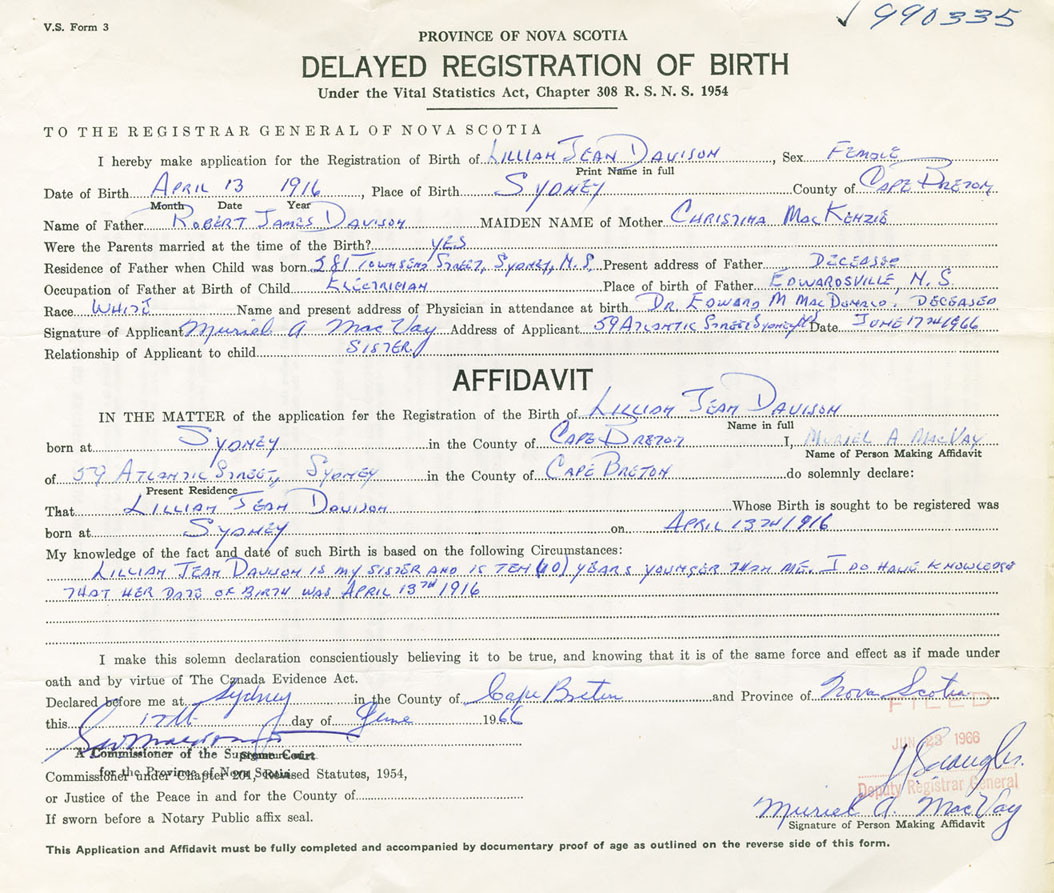 V.S. Form 3
✓ 990335
PROVINCE OF NOVA SCOTIA
DELAYED REGISTRATION OF BIRTH
Under the Vital Statistics Act, Chapter 308 R. S. N. S. 1954
TO THE REGISTRAR GENERAL OF NOVA SCOTIA
I hereby make application for the Registration of Birth of LILLIAN JEAN DAVISON, Sex FEMALE
Print Name in full
Date of Birth APRIL 13 1916, Place of Birth SYDNEY County of CAPE BRETON
Month Date Year
Name of Father ROBERT JAMES DAVISON MAIDEN NAME of Mother CHRISTINA MACKENZIE
Were the Parents married at the time of the Birth? YES
Residence of Father when Child was born 381 TOWNSEND STREET, SYDNEY, N.S. Present address of Father DECEASED
Occupation of Father at Birth of Child ELECTRICIAN Place of birth of Father EDWARDSVILLE, N.S.
Race WHITE Name and present address of Physician in attendance at birth DR. EDWARD M MACDONALD, DECEASED
Signature of Applicant Muriel A. MacVay Address of Applicant 59 ATLANTIC STREET SYDNEY NS Date JUNE 17TH 1966
Relationship of Applicant to child SISTER
AFFIDAVIT
IN THE MATTER of the application for the Registration of the Birth of LILLIAN JEAN DAVISON
Name in full
born at SYDNEY in the County of CAPE BRETON I, MURIEL A MACVAY
Name of Person Making Affidavit
of 59 ATLANTIC STREET, SYDNEY in the County of CAPE BRETON do solemnly declare:
Present Residence
That LILLIAN JEAN DAVISON Whose Birth is sought to be registered was
born at SYDNEY on APRIL 13TH 1916
My knowledge of the fact and date of such Birth is based on the following Circumstances:
LILLIAN JEAN DAVISON IS MY SISTER AND IS TEN (10) YEARS YOUNGER THAN ME. I DO HAVE KNOWLEDGE
THAT HER DATE OF BIRTH WAS APRIL 13TH 1916
I make this solemn declaration conscientiously believing it to be true, and knowing that it is of the same force and effect as if made under
oath and by virtue of The Canada Evidence Act.
Declared before me at Sydney in the County of Cape Breton and Province of Nova Scotia
FILED
this 17th day of June 1966
JUN 23 1966
A Commissioner of the Supreme Court
for the Province of Nova Scotia
Commissioner under Chapter 201, Revised Statutes, 1954,
Deputy Registrar General
or Justice of the Peace in and for the County of
Muriel A. MacVay
If sworn before a Notary Public affix seal.
Signature of Person Making Affidavit
This Application and Affidavit must be fully completed and accompanied by documentary proof of age as outlined on the reverse side of this form.